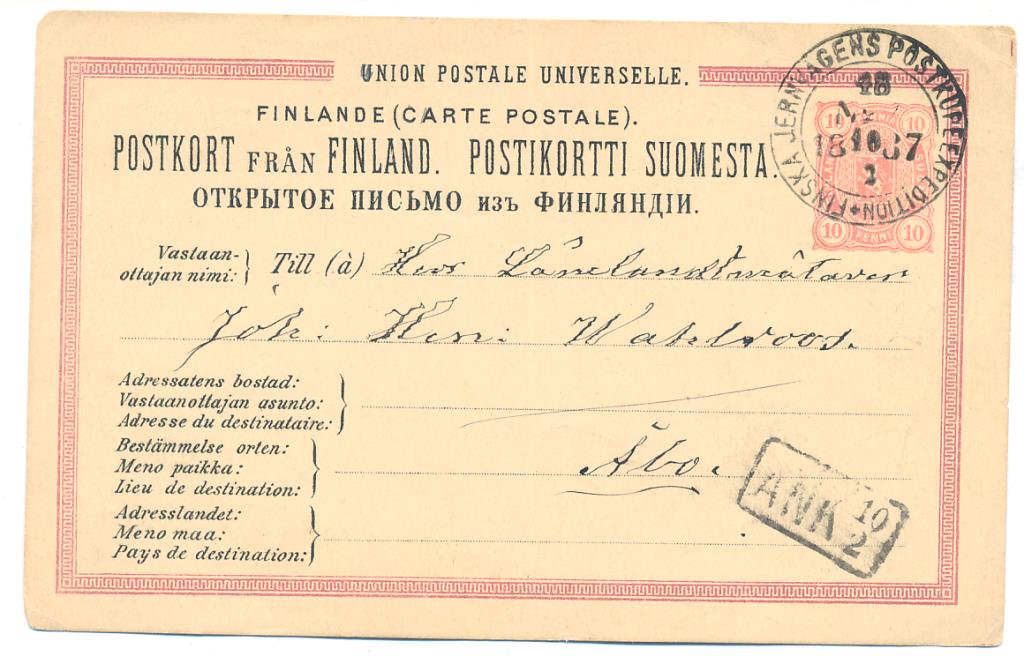 UNION POSTALE UNIVERSELLE.
FINLANDE (CARTE POSTALE).
POSTKORT FRÅN FINLAND. POSTIKORTTI SUOMESTA.
ОТКРЫТОЕ ПИСЬМО изъ ФИНЛЯНДІИ.
FINSKA JERNVÄGENS POSTKUPEEXPEDITION
10 10
10 PENNI 10
Vastaan-
ottajan nimi: Till (à) Herr
Joh: Wahlroos.
Adressatens bostad:
Vastaanottajan asunto:
Adresse du destinataire:
Bestämmelse orten:
Meno paikka: Åbo.
Lieu de destination:
Adresslandet:
Meno maa:
Pays de destination:
ANK 10
2